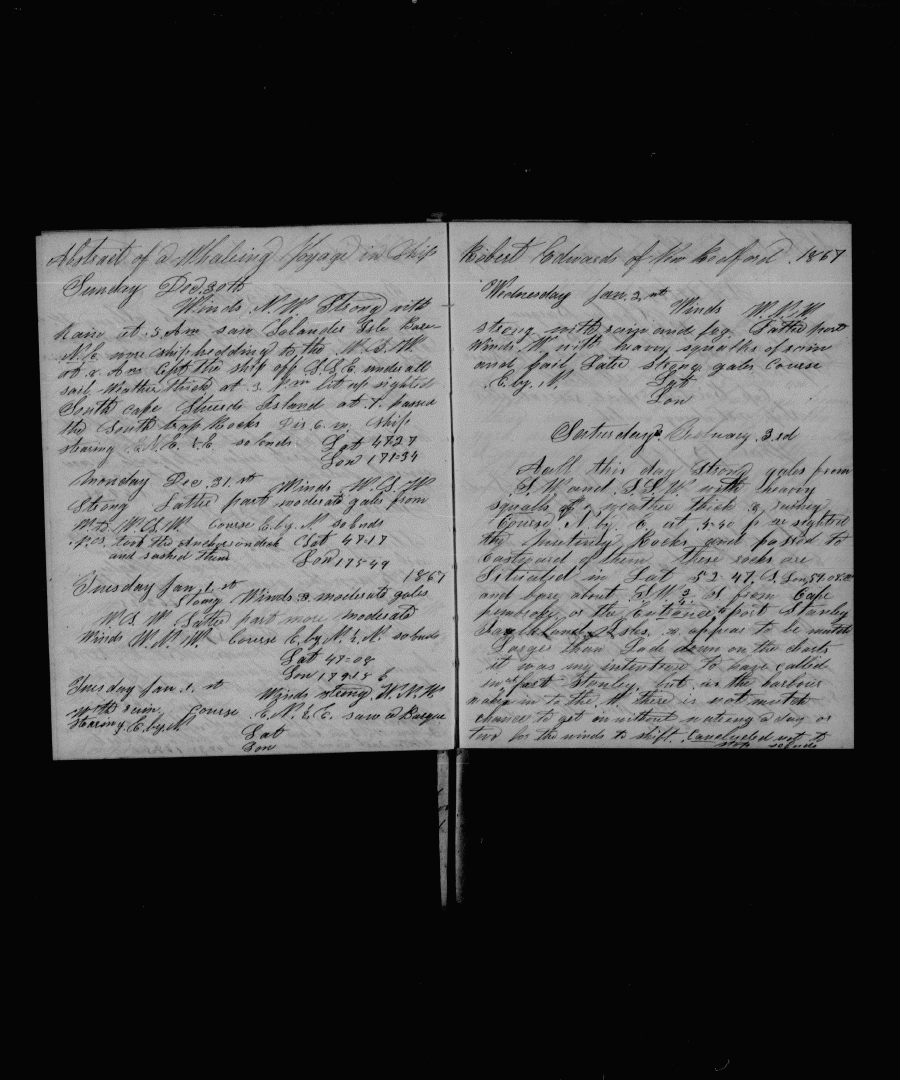 Abstract of a Whaleing Voyage in Ship
Sunday Dec. 30th
Winds N.W. Strong with
rain at 5 Am saw Solander Isle Bare
N.E. one ship hedding to the W.S.W.
at 2 Am kept the ship off S.S.E. under all
sail Weather thick at 3 Pm lit up sighted
South Cape Stuerds Island at 7 passed
the South trap Rocks Dis. 6 m. Ship
stearing E.N.E. & E. so Ends Lat 48 27
Lon 171=34
Monday Dec. 31. st Winds W.S.W.
Strong Latter part moderate gales from
W.S.W. Course E. by N. so Ends
took the Anchors on deck Lat 48-17
and lashed them Lon 175-49
1867
Tuesday Jan. 1. st
Strong Winds & moderate gales
W.S.W. Latter part more moderate
Winds W.N.W. Course E. by N. & N. so Ends
Lat 47=08
Lon 179 15 6
Tuesday Jan. 1. st Winds strong W.N.W
with rain, Course E.N.E. & E. saw a Barque
stearing E. by N.
Lat
Lon
Robert Edwards of New Bedford 1867
Wednesday Jan. 2. nt
Winds W.N.W
strong with rain and fog Latter part
Winds W with heavy squalls of rain
and hail, Later strong gales Course
E. by N. Lat
Lon
Saturday February 3rd
Aull this day Strong gales from
S.W and S.S.W. with heavy
squalls & weather thick & rainey
Course N. by E. at 5.40 p m sighted
the Beauchene Rocks and passed to
Eastward of them, these rocks are
Situated in Lat 52-47. S. Lon 59.08. W
and bare about S.W. 3/4 S from Cape
pembroke or the Entrance to port Stanley
Faulkland Isles, & appear to be mutch
Larger than Lade down on the charts
it was my intention to have called
in at port Stanley, but as the harbour
makes in to the W. there is not mutch
chance to get in without waiting a day or
two for the winds to shift, Concluded not to
stop so Ends